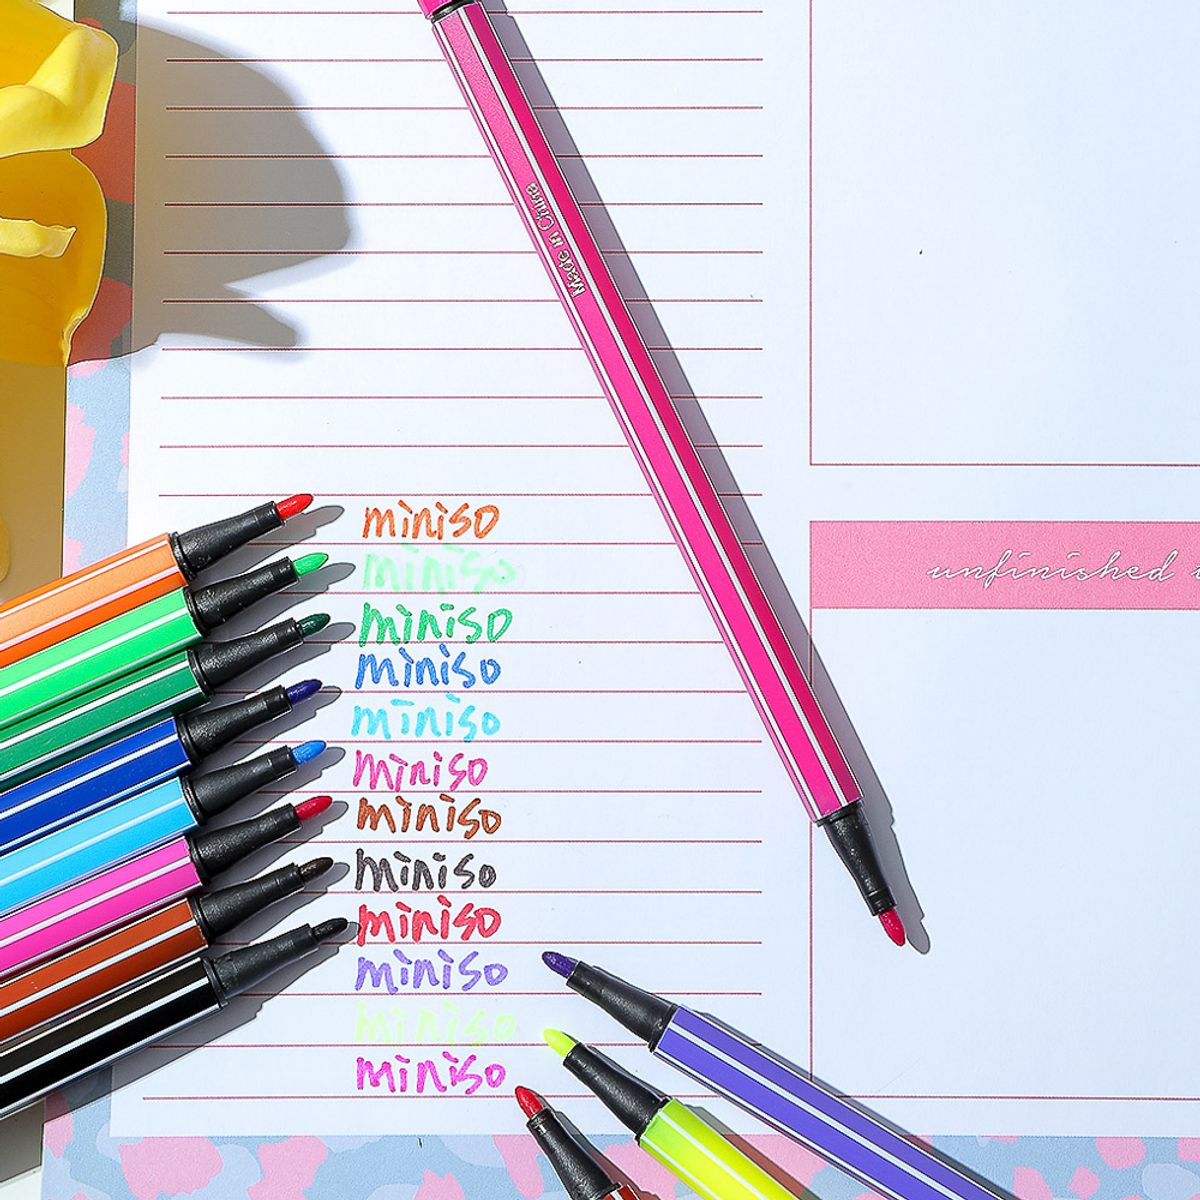 Made in China
miniso
miniso
miniso
miniso
miniso
miniso
miniso
miniso
miniso
miniso
miniso
miniso
unfinished